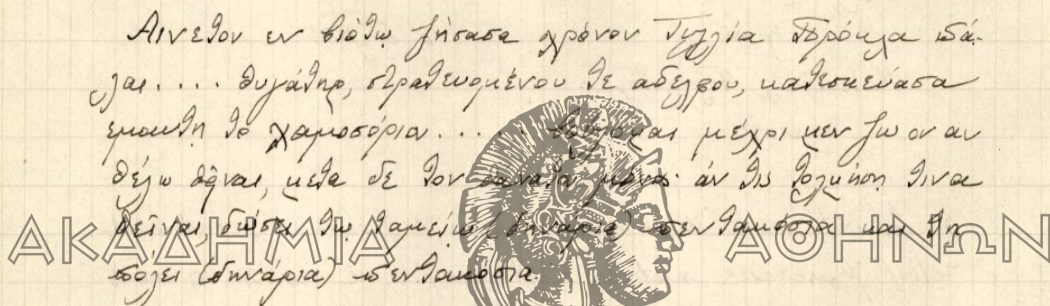 Αινετον εν βιότω ζήσασα χρόνον Τυλλία Πρόκλα πά-
λαι.... θυγάτηρ, στρατευομένου τε αδελφου, κατεσκεύασα
εμαυτη το χαμοσόριον..... βούλομαι μέχρι μεν ζω ον αν
θέλω θῆναι, μετα δε τον θανατον μόνος· άν τις τολμήση τινα
θεῖναι, δώσει τω ταμείω (δηνάρια) πεντακόσια και τη
πόλει (δηνάρια) πεντακόσια.
ΑΚΑΔΗΜΙΑ ΑΘΗΝΩΝ